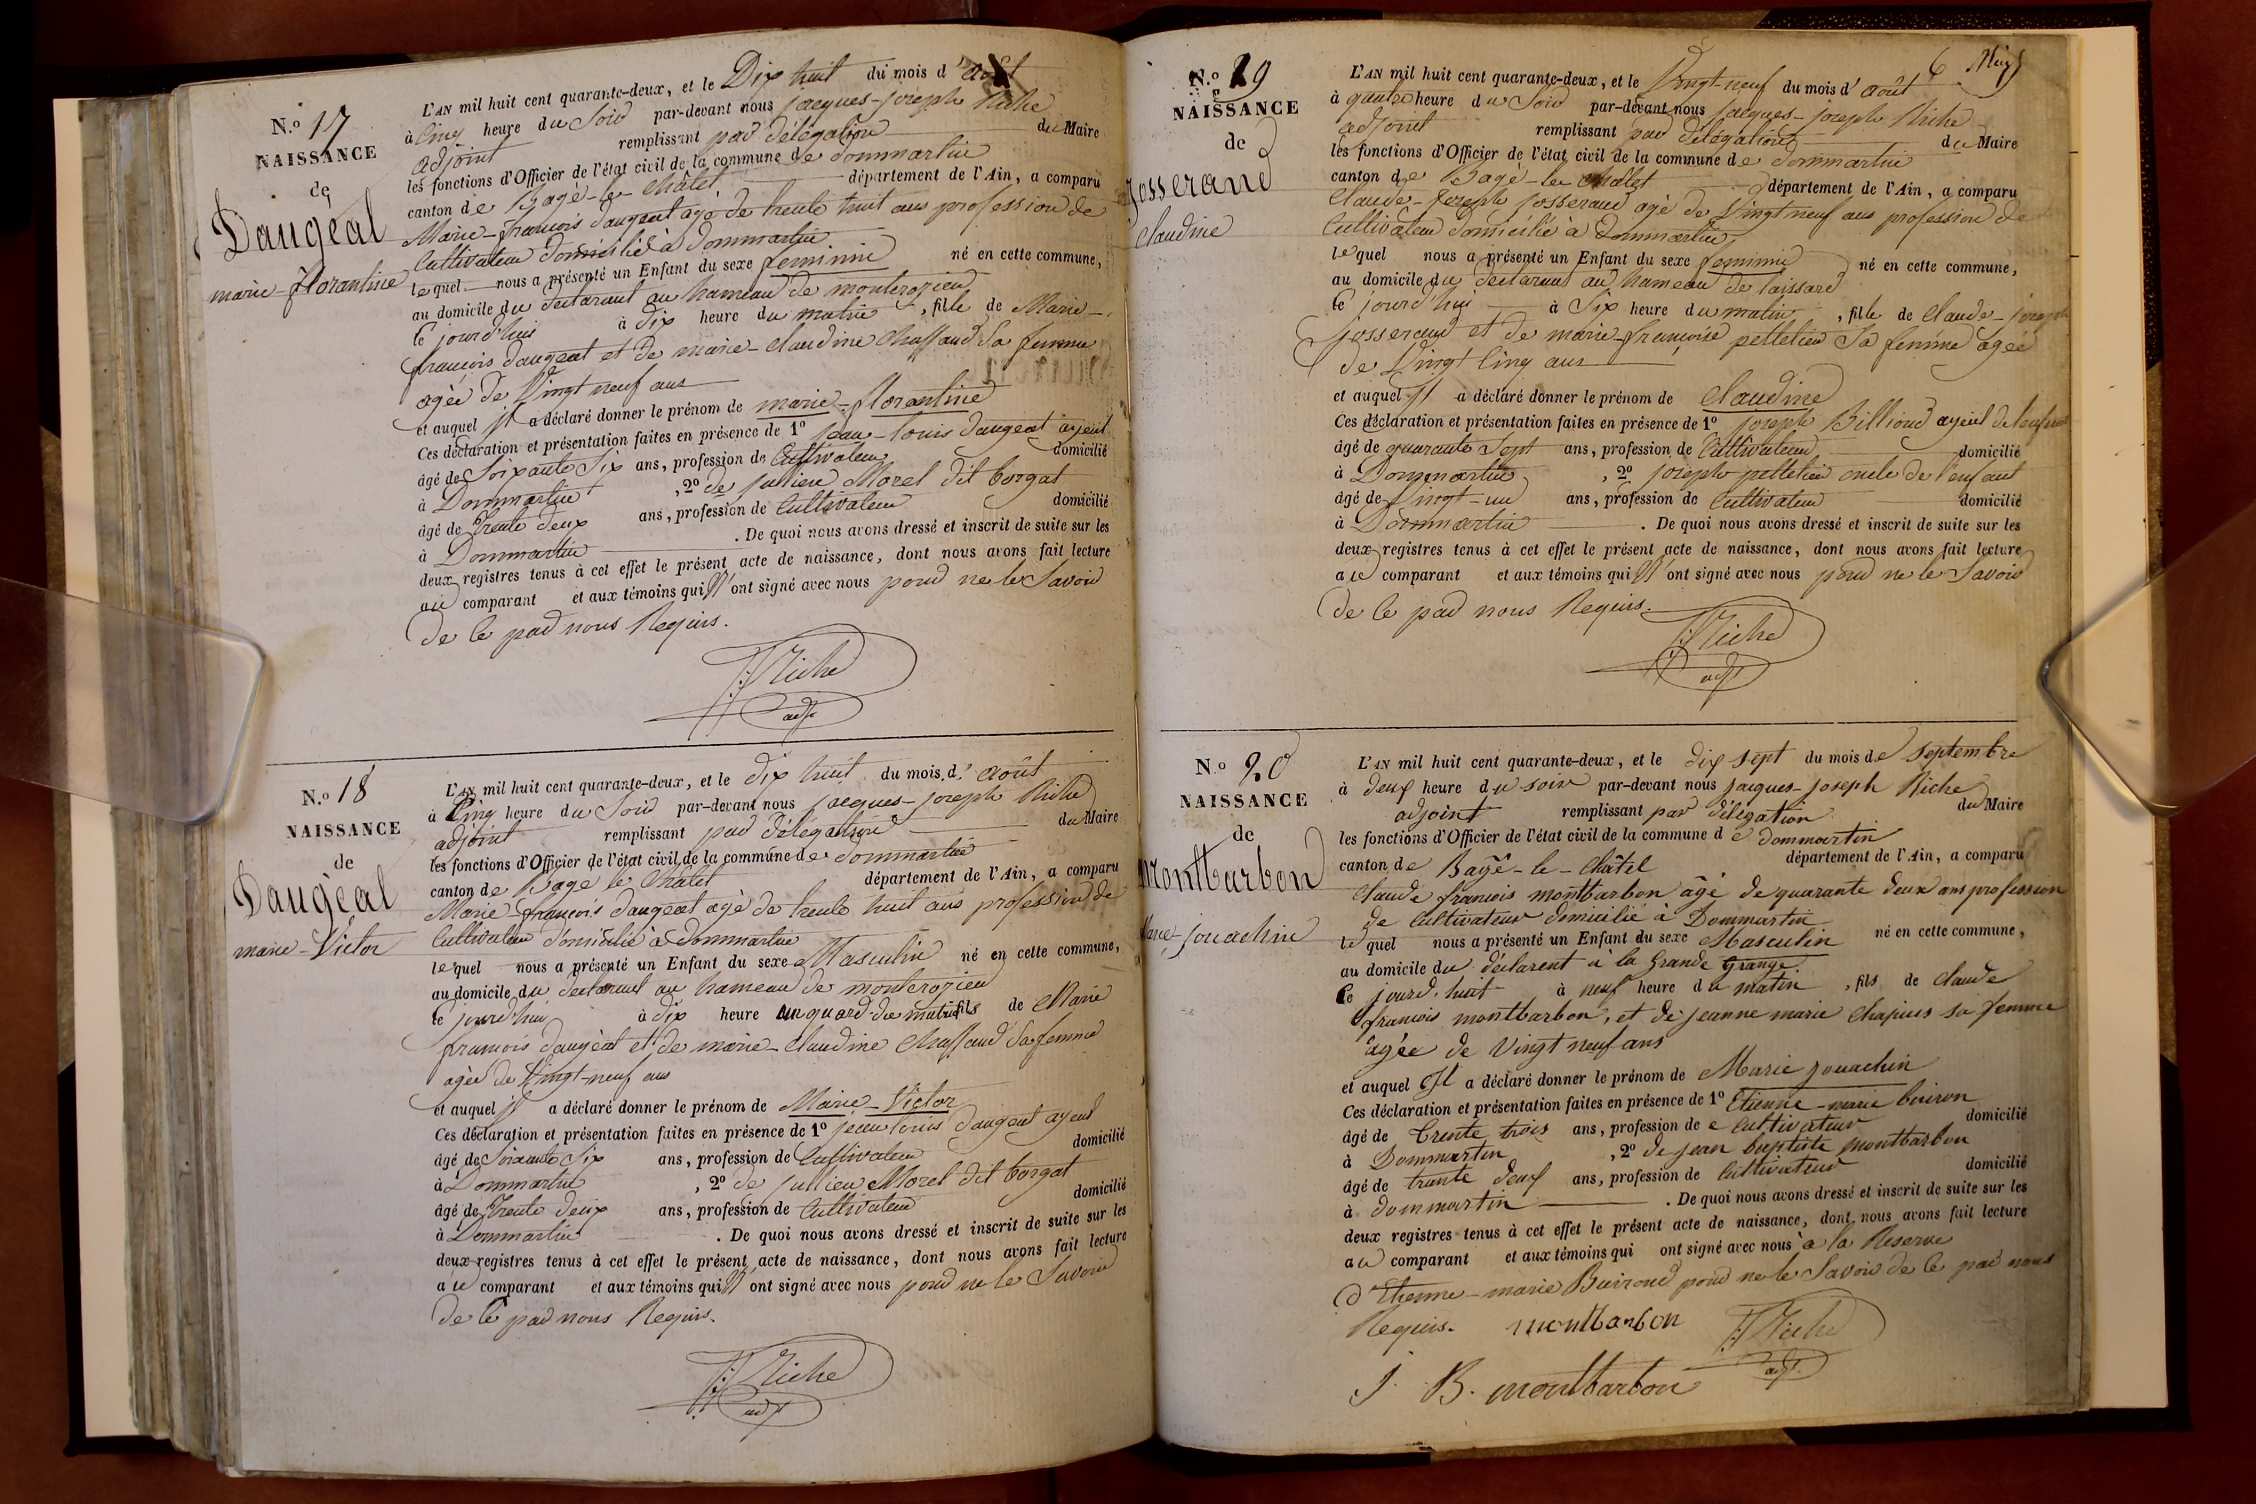 N.º 17
NAISSANCE
de
Daugeat
marie-florantine
L'AN mil huit cent quarante-deux, et le Dix huit du mois d'août
à Cinq heure du Soir par-devant nous jacques-joseph Riche
adjoint remplissant par délégation du Maire
les fonctions d'Officier de l'état civil de la commune de Dommartin
canton de Bagé-le-Châtel département de l'Ain, a comparu
Marie-françois daugeat agé de trente huit ans profession de
Cultivateur domicilié à Dommartin
lequel nous a présenté un Enfant du sexe feminin né en cette commune,
au domicile du declarant au hameau de
Ce jourd'hui à dix heure du matin, fille de Marie-
françois daugeat et de marie-claudine Chaffaud Sa femme
agée de Vingt neuf ans
et auquel Il a déclaré donner le prénom de marie-florantine
Ces déclaration et présentation faites en présence de 1º jean-louis daugeat ayeul
âgé de Soixante Six ans, profession de Cultivateur domicilié
à Dommartin, 2º de jullien Morel dit borgat
âgé de Trente deux ans, profession de Cultivateur domicilié
à Dommartin. De quoi nous avons dressé et inscrit de suite sur les
deux registres tenus à cet effet le présent acte de naissance, dont nous avons fait lecture
au comparant et aux témoins qui N'ont signé avec nous pour ne le Savoir
de Ce par nous Requis.
Riche
adj
N.º 18
NAISSANCE
de
Daugeat
marie-Victor
L'AN mil huit cent quarante-deux, et le dix huit du mois d'août
à Cinq heure du Soir par-devant nous jacques-joseph Riche
adjoint remplissant par délégation du Maire
les fonctions d'Officier de l'état civil de la commune de Dommartin
canton de Bagé le Châtel département de l'Ain, a comparu
Marie-françois daugeat agé de trente huit ans profession de
Cultivateur domicilié à Dommartin
lequel nous a présenté un Enfant du sexe Masculin né en cette commune,
au domicile du declarant au hameau de
Ce jourd'hui à dix heure un quard du matin fils de Marie
francois daugeat et de marie-claudine Chaffaud Sa femme
agée de Vingt-neuf ans
et auquel Il a déclaré donner le prénom de Marie-Victor
Ces déclaration et présentation faites en présence de 1º jean louis daugeat ayeul
âgé de Soixante Six ans, profession de Cultivateur domicilié
à Dommartin, 2º de jullien Morel dit borgat
âgé de Trente deux ans, profession de Cultivateur domicilié
à Dommartin. De quoi nous avons dressé et inscrit de suite sur les
deux registres tenus à cet effet le présent acte de naissance, dont nous avons fait lecture
au comparant et aux témoins qui N'ont signé avec nous pour ne le Savoir
de Ce par nous Requis.
Riche
adj
N.º 19
NAISSANCE
de
Josserand
Claudine
L'AN mil huit cent quarante-deux, et le Vingt-neuf du mois d'août
à quatre heure du Soir par-devant nous jacques-joseph Riche
adjoint remplissant par délégation du Maire
les fonctions d'Officier de l'état civil de la commune de Dommartin
canton de Bagé-le-Châtel département de l'Ain, a comparu
Claude-Joseph josserand agé de Vingt neuf ans profession de
Cultivateur domicilié à Dommartin
lequel nous a présenté un Enfant du sexe feminin né en cette commune,
au domicile du declarant au hameau de
Ce jourd'hui à Six heure du matin, fille de Claude-joseph
josserand et de marie-françoise pelletier Sa femme agée
de Vingt Cinq ans
et auquel Il a déclaré donner le prénom de Claudine
Ces déclaration et présentation faites en présence de 1º joseph Billioud ayeul de l'enfant
âgé de quarante Sept ans, profession de Cultivateur domicilié
à Dommartin, 2º joseph pelletier oncle de l'enfant
âgé de Vingt-un ans, profession de Cultivateur domicilié
à Dommartin. De quoi nous avons dressé et inscrit de suite sur les
deux registres tenus à cet effet le présent acte de naissance, dont nous avons fait lecture
au comparant et aux témoins qui N'ont signé avec nous pour ne le Savoir
de Ce par nous Requis.
Riche
adj
N.º 20
NAISSANCE
de
Montbarbon
Marie-jouachin
L'AN mil huit cent quarante-deux, et le dix sept du mois de septembre
à deux heure du soir par-devant nous jacques-joseph Riche
adjoint remplissant par délégation du Maire
les fonctions d'Officier de l'état civil de la commune de Dommartin
canton de Bagé-le-Châtel département de l'Ain, a comparu
Claude françois montbarbon âgé de quarante deux ans profession
de Cultivateur domicilié à Dommartin
lequel nous a présenté un Enfant du sexe Masculin né en cette commune,
au domicile du déclarent à la Grande Grange
Ce jourd'huit à neuf heure du matin, fils de Claude
francois montbarbon, et de jeanne marie Chapuis sa femme
agée de vingt neuf ans
et auquel Il a déclaré donner le prénom de Marie jouachin
Ces déclaration et présentation faites en présence de 1º Etienne-marie buiron
âgé de trente trois ans, profession de Cultivateur domicilié
à Dommartin, 2º de jean baptiste montbarbon
âgé de trante deux ans, profession de Cultivateur domicilié
à dommartin. De quoi nous avons dressé et inscrit de suite sur les
deux registres tenus à cet effet le présent acte de naissance, dont nous avons fait lecture
au comparant et aux témoins qui ont signé avec nous à la Reserve
d'Etienne-marie Buiron pour ne le Savoir de Ce par nous
Requis. montbarbon Riche
adj.
J. B. montbarbon